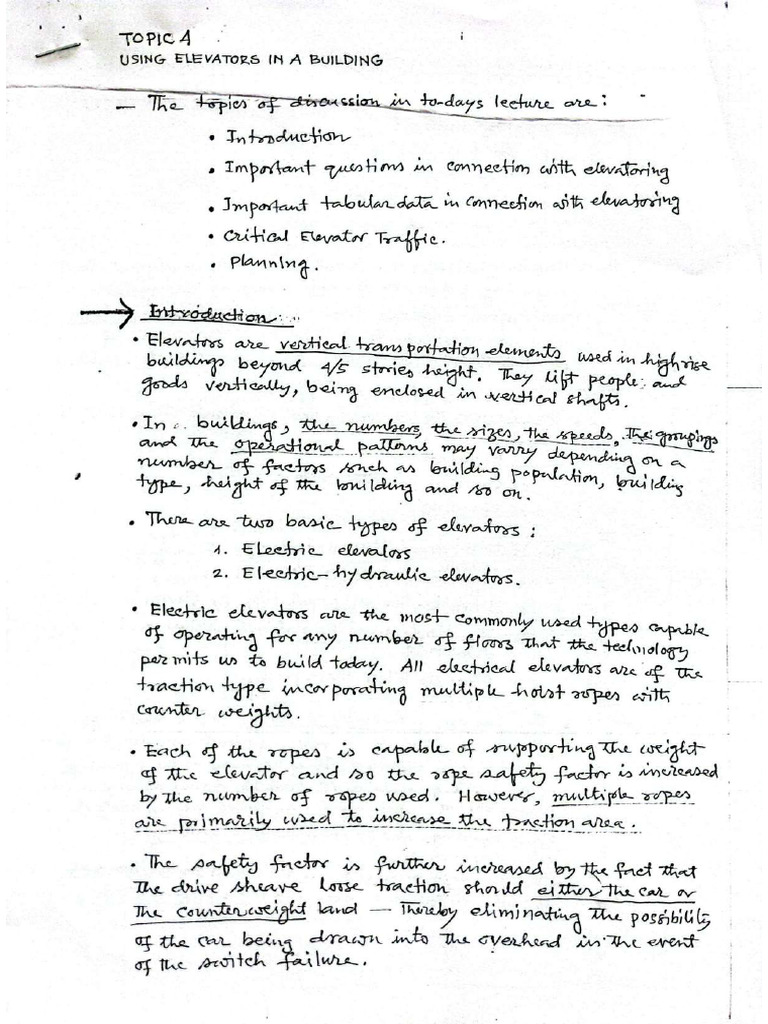 TOPIC 4
USING ELEVATORS IN A BUILDING
– The topics of discussion in to-days lecture are:
• Introduction
• Important questions in connection with elevatoring
• Important tabular data in connection with elevatoring
• Critical Elevator Traffic.
• Planning.
→ Introduction:
• Elevators are vertical transportation elements used in highrise
buildings beyond 4/5 stories height. They lift people and
goods vertically, being enclosed in vertical shafts.
• In buildings, the numbers, the sizes, the speeds, the groupings
and the operational patterns may varry depending on a
number of factors such as building population, building
type, height of the building and so on.
• There are two basic types of elevators:
1. Electric elevators
2. Electric-hydraulic elevators.
• Electric elevators are the most commonly used types capable
of operating for any number of floors that the technology
permits us to build today. All electrical elevators are of the
traction type incorporating multiple hoist ropes with
counter weights.
• Each of the ropes is capable of supporting the weight
of the elevator and so the rope safety factor is increased
by the number of ropes used. However, multiple ropes
are primarily used to increase the traction area.
• The safety factor is further increased by the fact that
the drive sheave loose traction should either the car or
the counterweight land — thereby eliminating the possibility
of the car being drawn into the overhead in the event
of the switch failure.